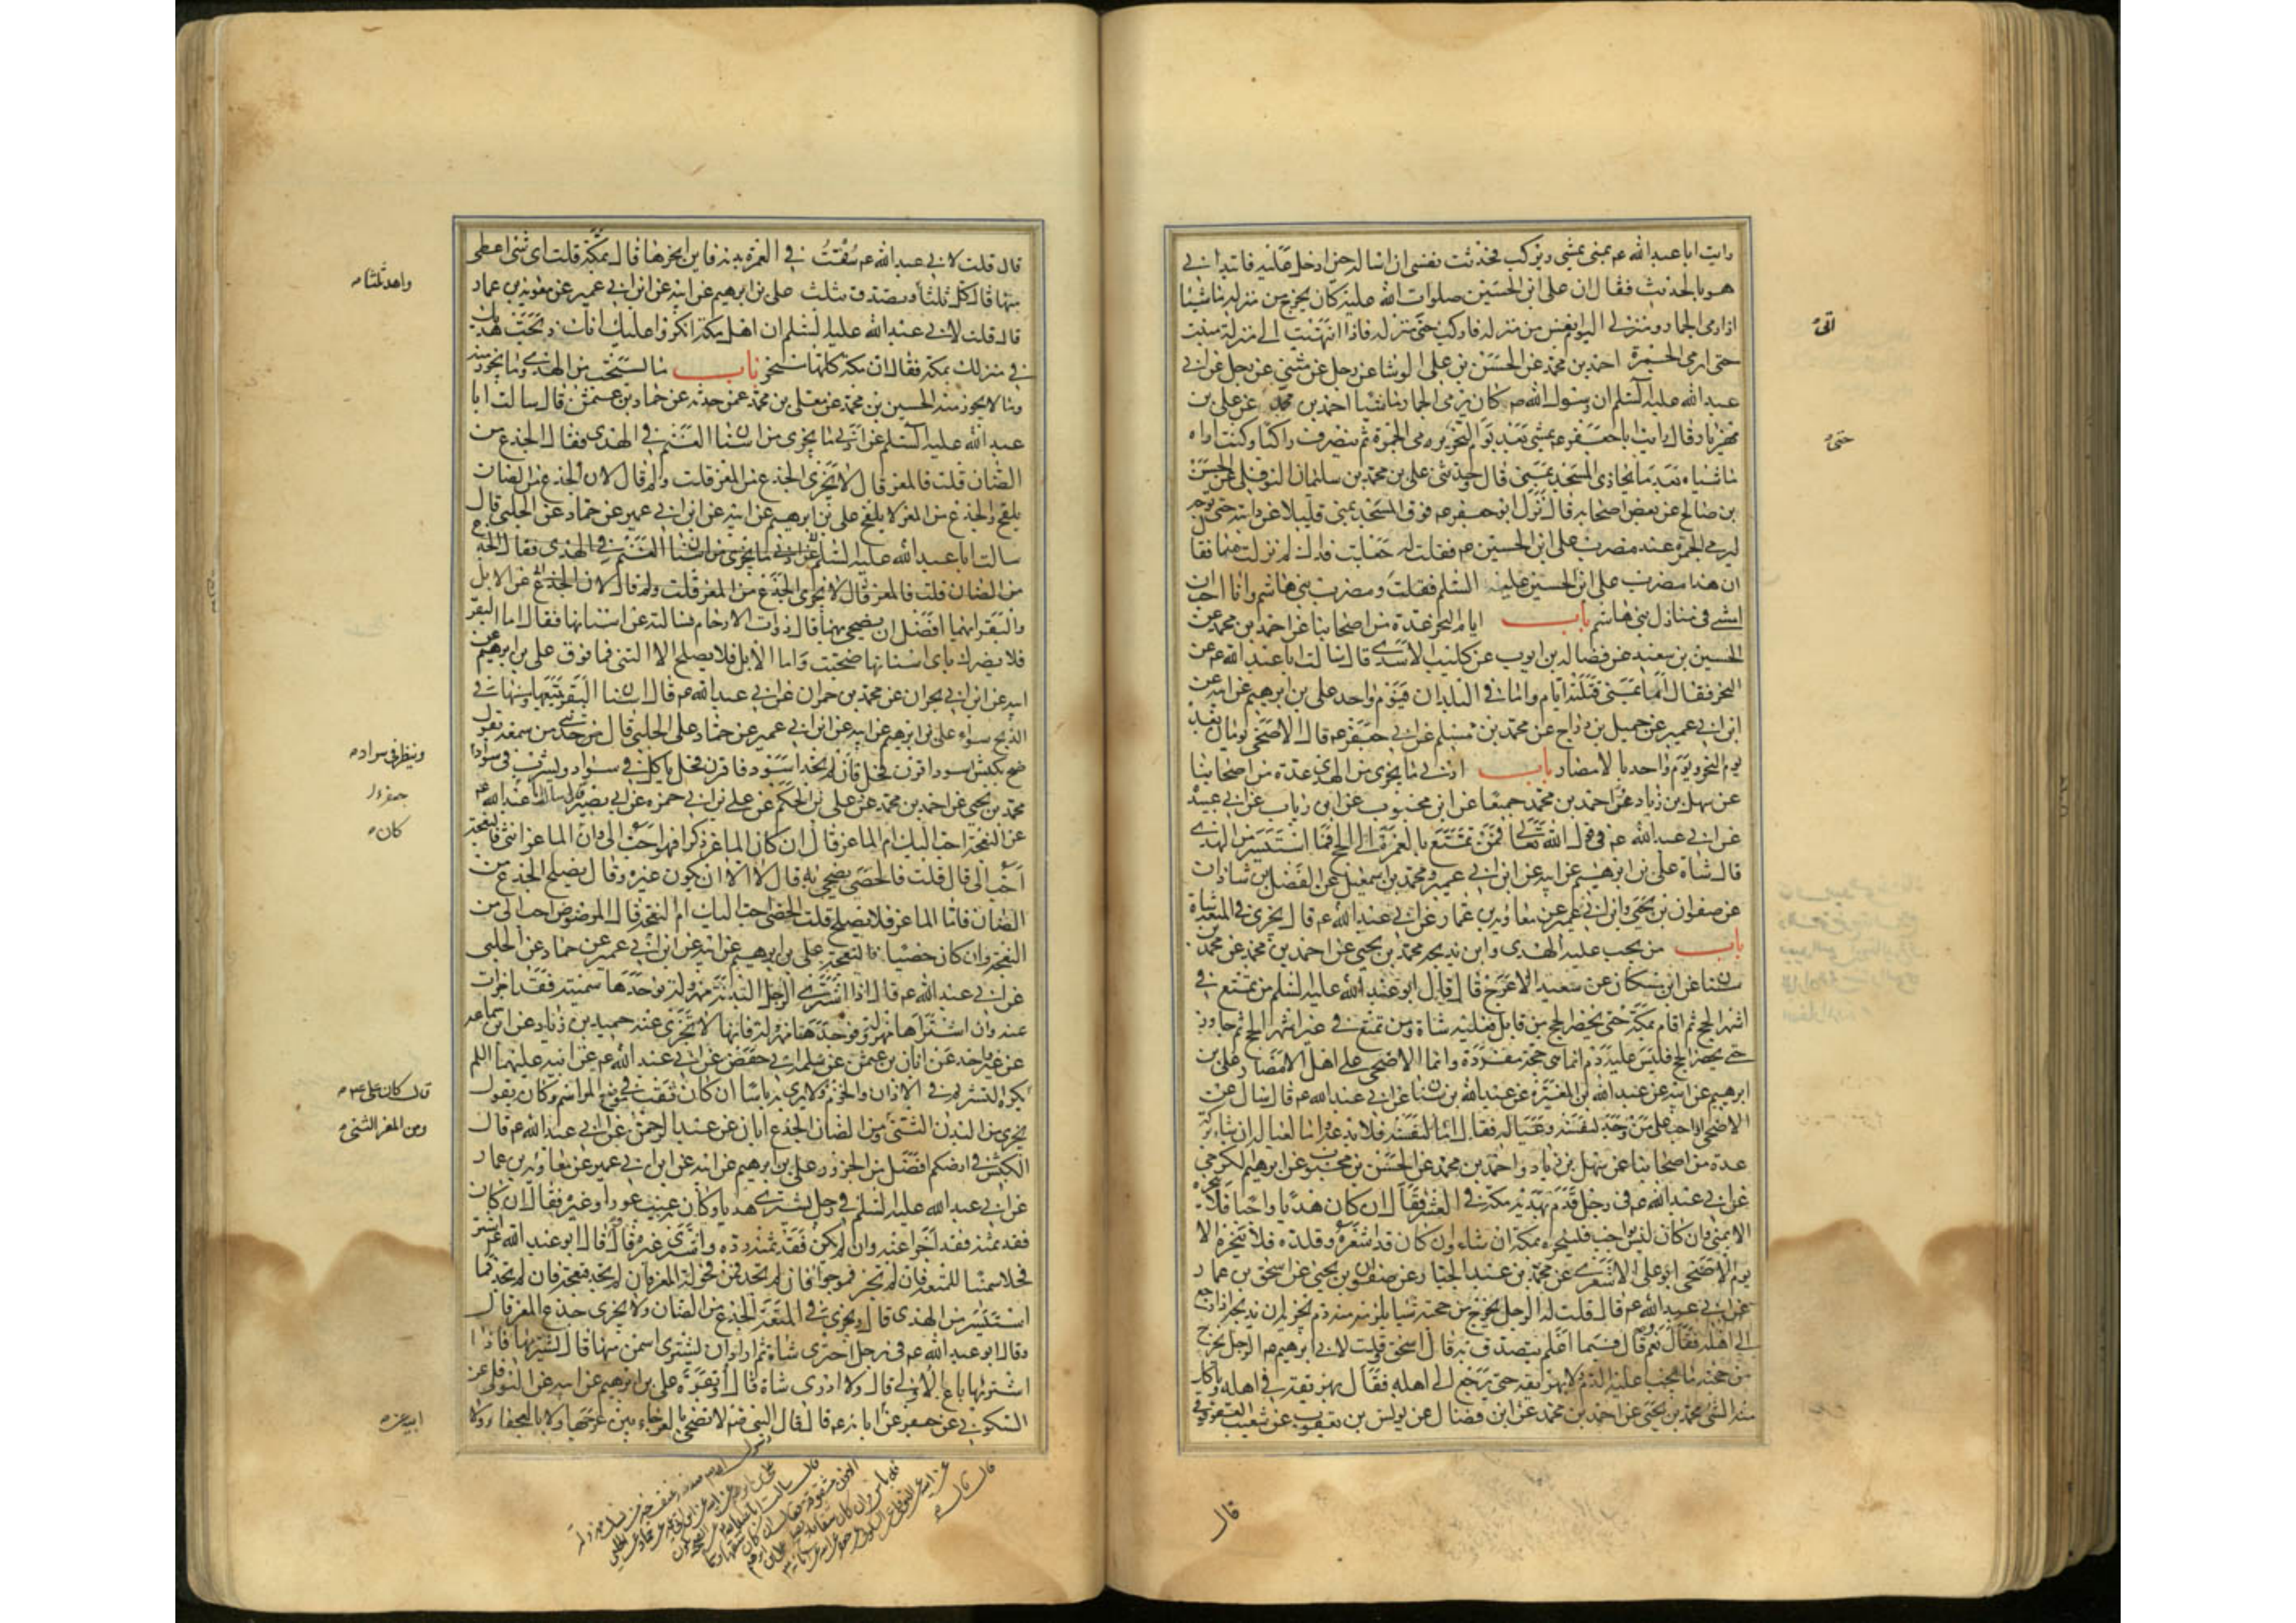 رايت ابا عبد الله عم بمنى يمشى ويركب فحدثت نفسى ان اساله حين ادخل عليه فابتدانى
هو بالحديث فقال ان على ابن الحسين صلوات الله عليه كان يخرج من منزله ماشيا
اذا رمى الجمار ومنزلى اليوم انفس من منزله فاركب حتى منزله فاذا انتهيت الى منزله مشيت
حتى ارمى الجمرة احمد بن محمد عن الحسن بن على الوشا عن رجل عن مثنى عن رجل عن ابى
عبد الله عليه السلم ان رسول الله ص كان يرمى الجمار ماشيا احمد بن محمد عن على بن
مهزيار قال رايت ابا جعفر عم يمشى بعد يوم النحر يرمى الجمرة ثم ينصرف راكبا وكنت اراه
ماشيا بعد ما يحاذى المسجد بمنى قال وحدثنى على بن محمد بن سليمان النوفلى عن الحسن
بن صالح عن بعض اصحابه قال نزل ابو جعفر عم فوق المسجد بمنى قليلا عن دابته حتى توجه
ليرمى الجمرة عند مضرب على ابن الحسين عم فقلت له جعلت فداك لم نزلت ههنا فقا
ان هذا مضرب على ابن الحسين عليه السلم فقلت ومضرب بنى هاشم وانا احب ان
امشى فى منازل بنى هاشم باب ايام النحر عدة من اصحابنا عن احمد بن محمد عن
الحسين بن سعيد عن فضاله بن ايوب عن كليب الاسدى قال سالت ابا عبد الله عم عن
النحر فقال اما بمنى فثلثة ايام واما فى البلدان فيوم واحد على بن ابرهيم عن ابيه عن
ابن ابى عمير عن جميل بن دراج عن محمد بن مسلم عن ابى جعفر عم قال الاضحى يومان بعد
يوم النحر ويوم واحد بالامصار باب ادنى ما يجزى من الهدى عدة من اصحابنا
عن سهل بن زياد عن احمد بن محمد جميعا عن ابن محبوب عن ابن رياب عن ابى عبيد
عن ابى عبد الله عم فى قول الله تعالى فمن تمتع بالعمرة الى الحج فما استيسر من الهدى
قال شاة على بن ابرهيم عن ابيه عن ابن ابى عمير ومحمد بن اسمعيل عن الفضل بن شاذان
عن صفوان بن يحيى وابن ابى عمير عن معاويه بن عمار عن ابى عبد الله عم قال يجزى فى المتعه شاة
باب من يجب عليه الهدى واين يذبحه محمد بن يحيى عن احمد بن محمد عن محمد بن
سنان عن ابن مسكان عن سعيد الاعرج قال قال ابو عبد الله عليه السلم من تمتع فى
اشهر الحج ثم اقام بمكة حتى يحضر الحج من قابل فعليه شاة ومن تمتع فى غير اشهر الحج ثم جاور
حتى يحضر الحج فليس عليه دم انما هى حجة مفردة وانما الاضحى على اهل الامصار على بن
ابرهيم عن ابيه عن عبد الله بن المغيرة عن عبد الله بن سنان عن ابى عبد الله عم قال سال عن
الاضحى اواجب على من وجد لنفسه وعياله فقال اما لنفسه فلا يدعه واما لعياله ان شاء تركه
عدة من اصحابنا عن سهل بن زياد واحمد بن محمد عن الحسن بن محبوب عن ابرهيم الكرخى
عن ابى عبد الله عم فى رجل قدم بهديه مكة فى العشر فقال ان كان هديا واجبا فلا ينحره
الا بمنى وان كان ليس بواجب فلينحره بمكة ان شاء وان كان قد اشعره وقلده فلا ينحره الا
يوم الاضحى ابو على الاشعرى عن محمد بن عبد الجبار عن صفوان بن يحيى عن اسحق بن عمار
عن ابى عبد الله عم قال قلت له الرجل يخرج من حجته شيا يلزمه منه دم يجزيه ان يذبحه اذا رجع
الى اهله فقال نعم وقال فيما اعلم يتصدق به قال اسحق وقلت لابى ابرهيم عم الرجل يخرج
من حجته ما يجب عليه الدم ولا يهريقه حتى يرجع الى اهله فقال يهريقه فى اهله وياكل
منه الشى محمد بن يحيى عن احمد بن محمد عن ابن فضال عن يونس بن يعقوب عن شعيب العقرقوفى
اتى
حتى
قال
قال قلت لابى عبد الله عم سقت فى العمرة بدنه فاين انحرها قال بمكة قلت اى شى اعطى
منها قال كل ثلثا وتصدق بثلث على بن ابرهيم عن ابيه عن ابن ابى عمير عن معويه بن عمار
قال قلت لابى عبد الله عليه السلم ان اهل مكة انكروا عليك انك ذبحت هديك
فى منزلك بمكة فقال ان مكة كلها منحر باب ما يستحب من الهدى وما يجوز منه
وما لا يجوز منه الحسين بن محمد عن معلى بن محمد عمن حدثه عن حماد بن عثمن قال سالت ابا
عبد الله عليه السلم عن ادنى ما يجزى من اسنان الغنم فى الهدى فقال الجذع من
الضان قلت فالمعز قال لا يجزى الجذع من المعز قلت ولم قال لان الجذع من الضان
يلقح والجذع من المعز لا يلقح على بن ابرهيم عن ابيه عن ابن ابى عمير عن حماد عن الحلبى قال
سالت ابا عبد الله عليه السلم عن ادنى ما يجزى من اسنان الغنم فى الهدى فقال الجذع
من الضان قلت فالمعز قال لا يجزى الجذع من المعز قلت ولم قال لان الجذع عن الابل
والبقر ايهما افضل ان يضحى بهما قال ذوات الارحام فسالته عن اسنانها فقال اما البقر
فلا يضرك باى اسنانها ضحيت واما الابل فلا يصلح الا الثنى فما فوق على بن ابرهيم عن
ابيه عن ابن ابى نجران عن محمد بن حمران عن ابى عبد الله عم قال اسنان البقر تبيعها ومسنها فى
الذبح سواء على بن ابرهيم عن ابيه عن ابن ابى عمير عن حماد على الحلبى قال حدثنى من سمعه يقول
ضح بكبش اسود اقرن فحل فان لم تجد اسود فاقرن فحل ياكل فى سواد ويشرب فى سواد
محمد بن يحيى عن احمد بن محمد عن على بن الحكم عن على بن ابى حمزه عن ابى بصير قال سالت ابا عبد الله عم
عن النعجة احب اليك ام الماعز قال ان كان الماعز ذكرا فهو احب الى وان الماعز انثى فالنعجة
احب الى قال قلت فالخصى يضحى به قال لا الا ان يكون غيره وقال يصلح الجذع من
الضان فاما الماعز فلا يصلح قلت الخصى احب اليك ام النعجة قال المرضوض احب الى من
النعجة وان كان خصيا فالنعجة على بن ابرهيم عن ابيه عن ابن ابى عمير عن حماد عن الحلبى
عن ابى عبد الله عم قال اذا اشترى الرجل البدنة مهزولة فوجدها سمينة فقد اجزات
عنه وان اشتراها مهزولة فوجدها مهزولة فانها لا تجزى عنه حميد بن زياد عن ابن سماعه
عن غير واحد عن ابان بن عثمن عن سلمه ابى حفص عن ابى عبد الله عم عن ابيه عليهما السلم
يكره التشريم فى الاذان والخرم ولا يرى به باسا ان كان ثقب فى موضع المواسم وكان يقول
يجزى من البدن الثنى ومن الضان الجذع ابان عن عبد الرحمن عن ابى عبد الله عم قال
الكبش فى ارضكم افضل من الجزور على بن ابرهيم عن ابيه عن ابن ابى عمير عن معاويه بن عمار
عن ابى عبد الله عليه السلم فى رجل يشترى هديا وكان به عيب عور او غيره فقال ان كان
فقد ثمنه فقد اجزا عنه وان لم يكن فقد ثمنه رده واشترى غيره قال وقال ابو عبد الله عم اشتر
فحلا سمينا للمتعه فان لم تجز فموجوا فان لم تجد فمن فحولة المعز فان لم تجد فنعجة فان لم تجد فما
استيسر من الهدى قال ويجزى فى المتعة الجذع من الضان ولا يجزى جذع المعز قال
وقال ابو عبد الله عم فى رجل اشترى شاة ثم اراد ان يشترى اسمن منها قال يشتريها فاذا
اشتريها باع الاولى قال ولا ادرى شاة قال او بقرة على بن ابرهيم عن ابيه عن النوفلى عن
السكونى عن جعفر عن ابايه عم قال قال النبى ص لا تضحى بالعرجاء بين عرجها ولا بالعجفا ولا
واحد ثلثا
وينظر فى سواد
كان
قال كان على عم
ومن المعز الثنى